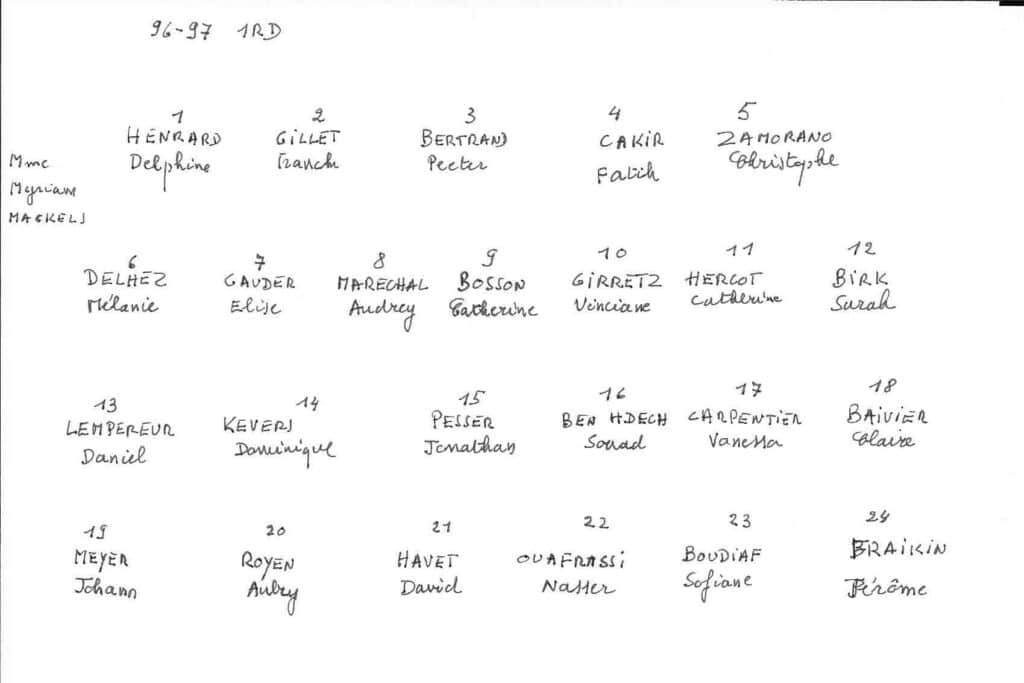 96-97 1RD
1 2 3 4 5
HENRARD GILLET BERTRAND CAKIR ZAMORANO
Mme Delphine Franck Peeter Fatih Christophe
Myriam
MACKELS
6 7 8 9 10 11 12
DELHEZ GAUDER MARECHAL BOSSON GIRRETZ HERGOT BIRK
Mélanie Elise Audrey Catherine Vinciane Catherine Sarah
13 14 15 16 17 18
LEMPEREUR KEVERS PESSER BEN HDECH CARPENTIER BAIVIER
Daniel Dominique Jonathan Souad Vanessa Claire
19 20 21 22 23 24
MEYER ROYEN HAVET OUAFRASSI BOUDIAF BRAIKIN
Johann Aubry David Nasser Sofiane Jérôme